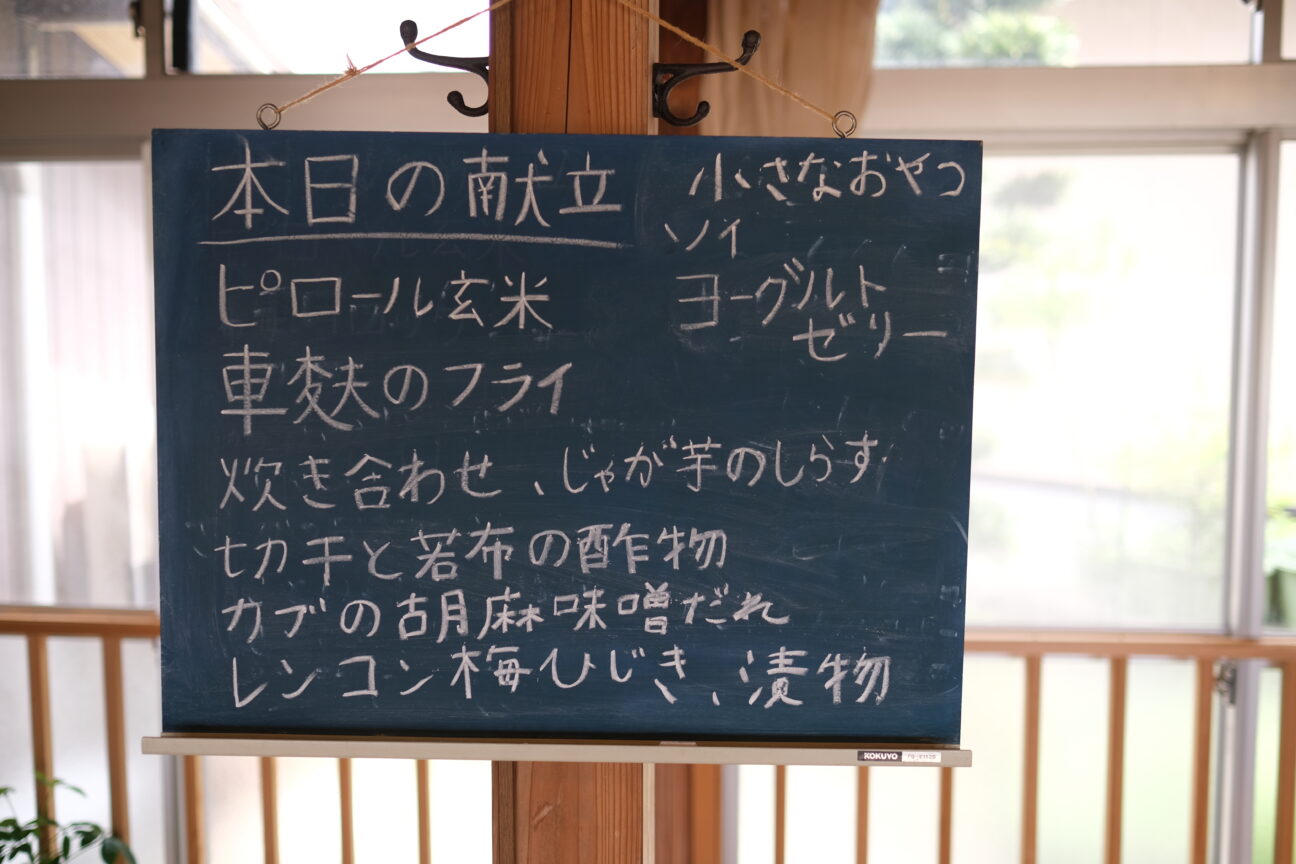 本日の献立
ピロール玄米
車麩のフライ
炊き合わせ、じゃが芋のしらす
切干と若布の酢物
カブの胡麻味噌だれ
レンコン梅ひじき、漬物
小さなおやつ
ソイ
ヨーグルト
ゼリー
KOKUYO